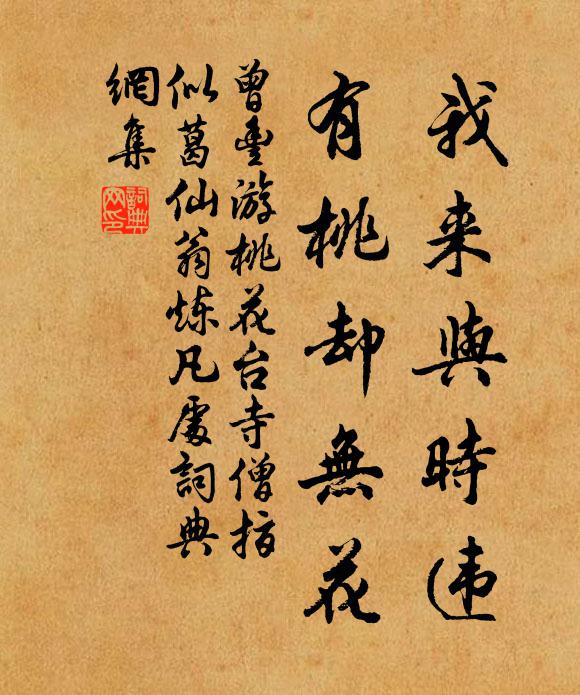 我来與時违
有桃却無花
曾豊游桃花台寺僧指
似葛仙翁炼凡處詞典
網集
詞典網印